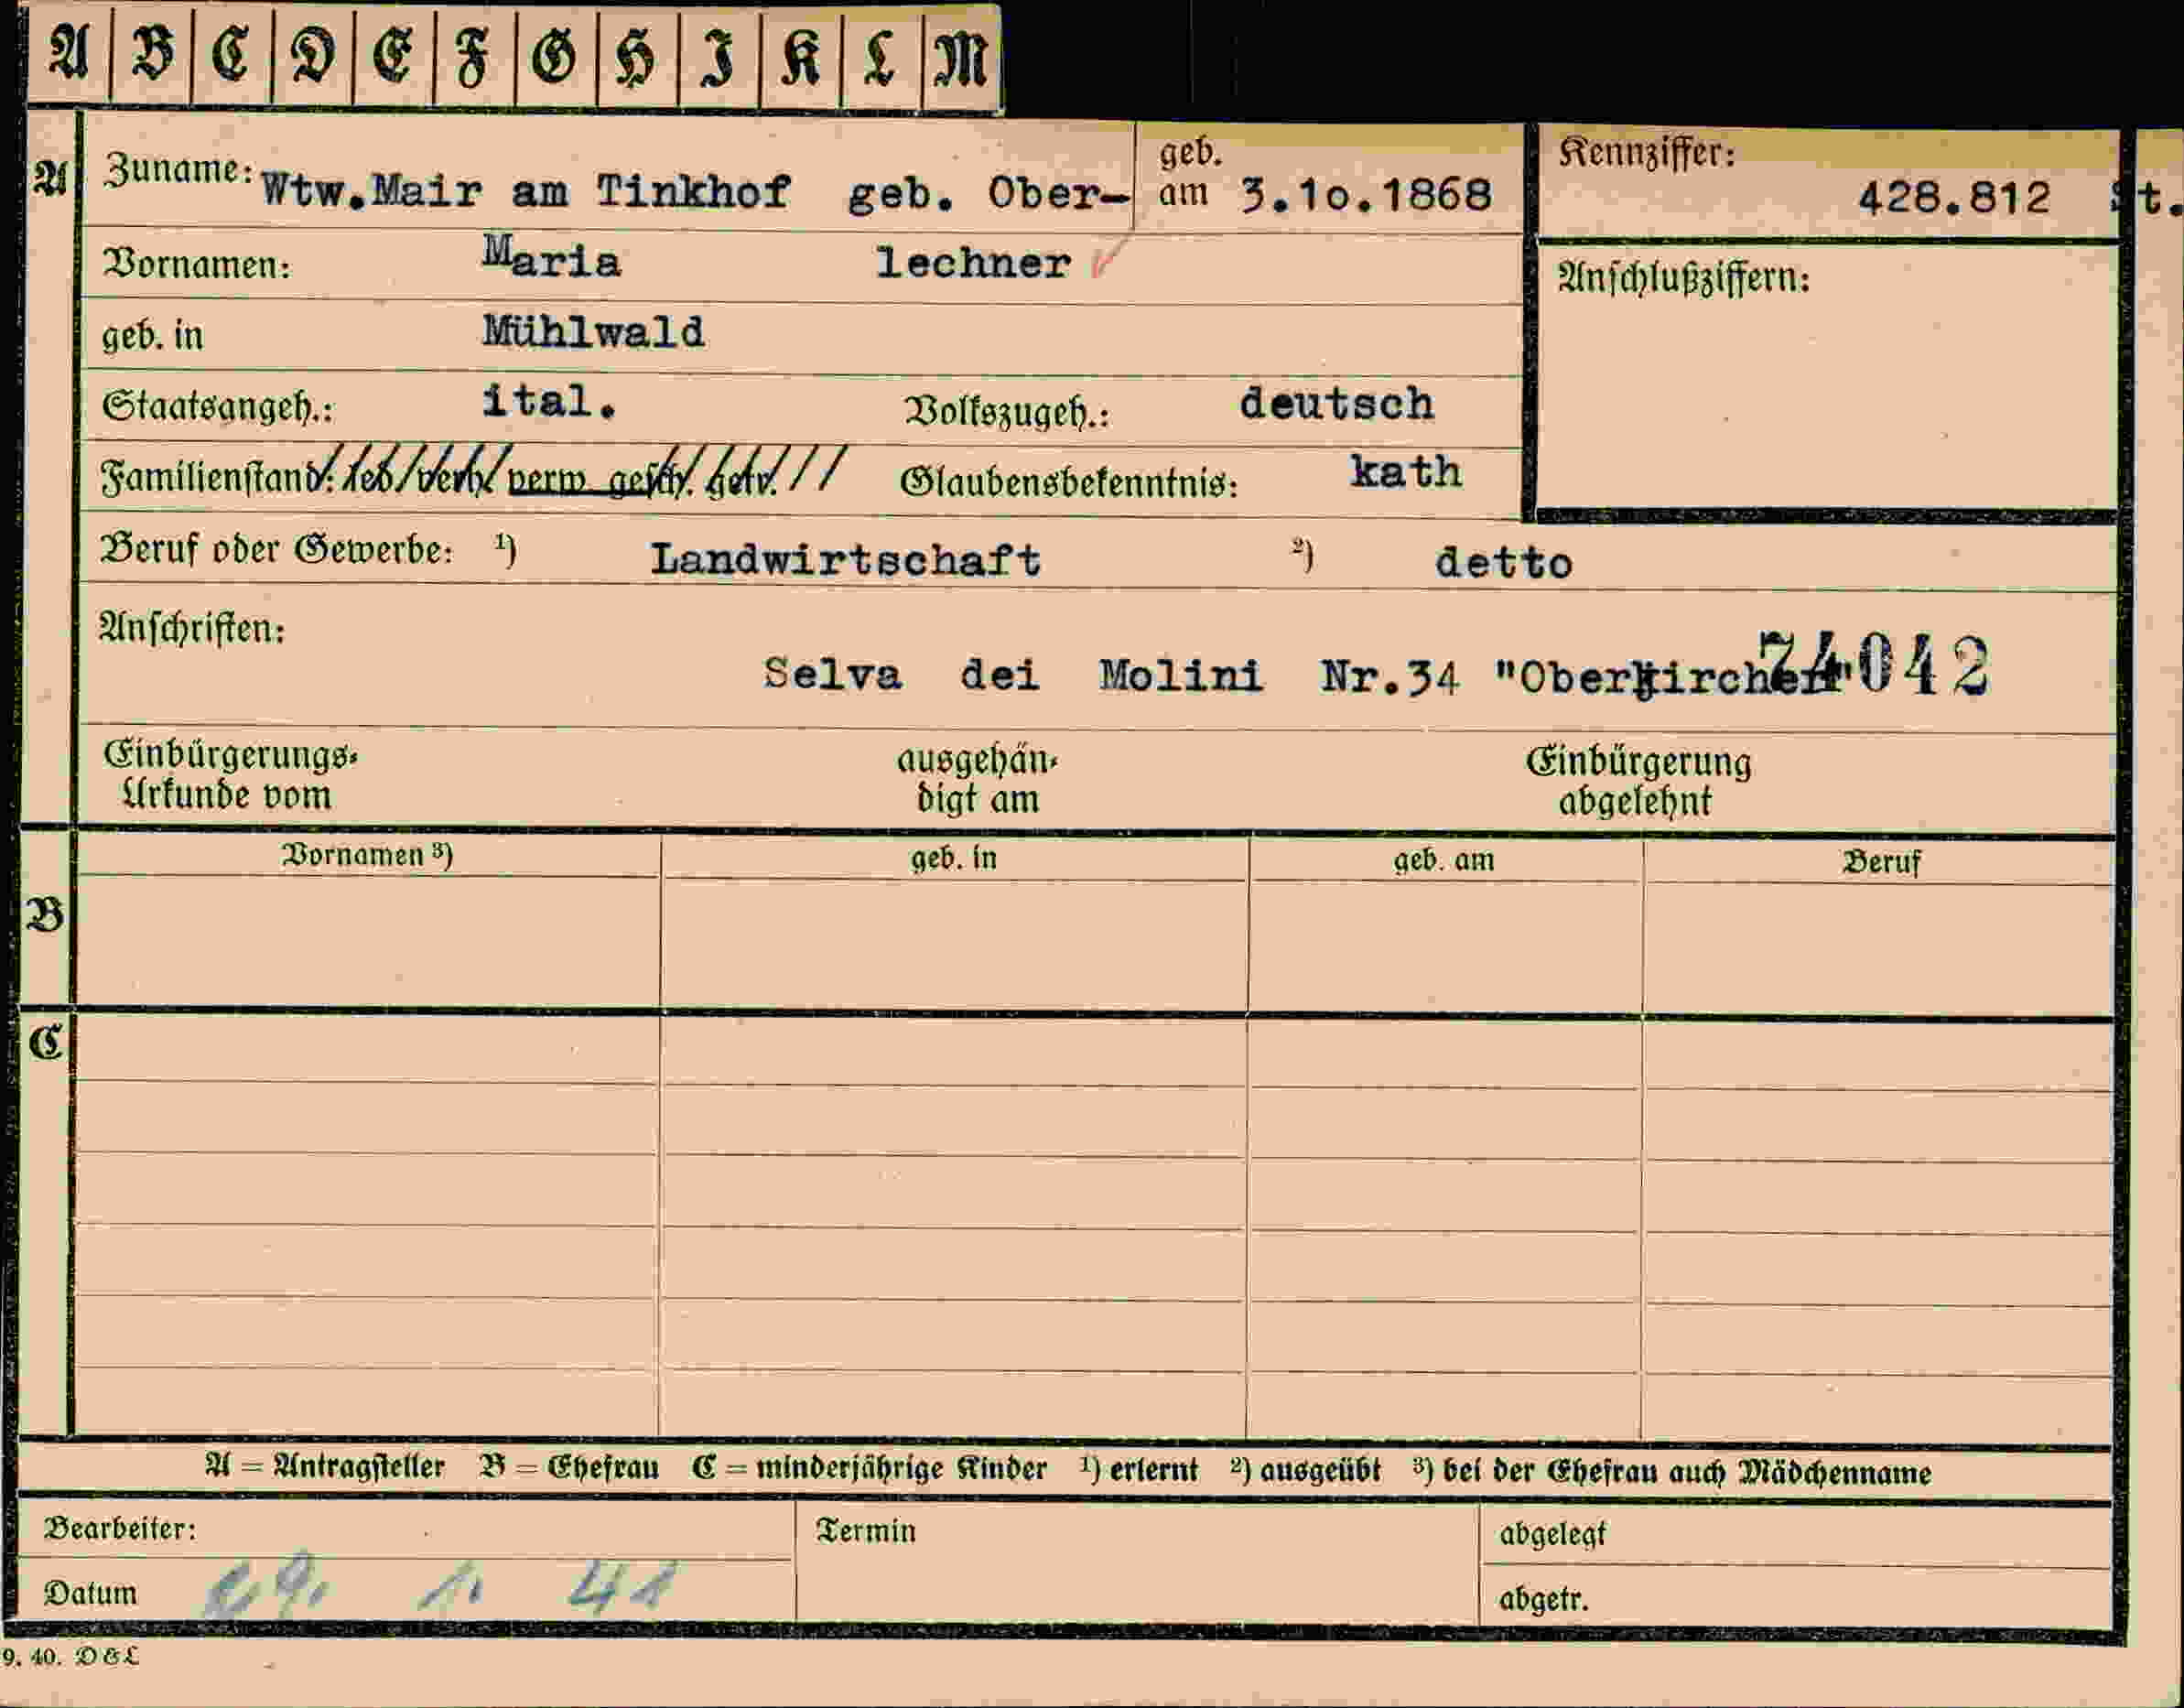 A B C D E F G H I K L M
A Zuname: Wtw.Mair am Tinkhof geb. Ober- geb. am 3.1o.1868 Kennziffer: 428.812 St.
Vornamen: Maria lechner Anschlußziffern:
geb. in Mühlwald
Staatsangeh.: ital. Volkszugeh.: deutsch
Familienstand: led. verh. verw. gesch. getr. Glaubensbekenntnis: kath
Beruf oder Gewerbe: 1) Landwirtschaft 2) detto
Anschriften:
Selva dei Molini Nr.34 "Oberkircher" 74042
Einbürgerungs- ausgehän- Einbürgerung
Urkunde vom digt am abgelehnt
Vornamen 3) geb. in geb. am Beruf
B
C
A = Antragsteller B = Ehefrau C = minderjährige Kinder 1) erlernt 2) ausgeübt 3) bei der Ehefrau auch Mädchenname
Bearbeiter: Termin abgelegt
Datum 1. 41 abgetr.
9. 40. D & L